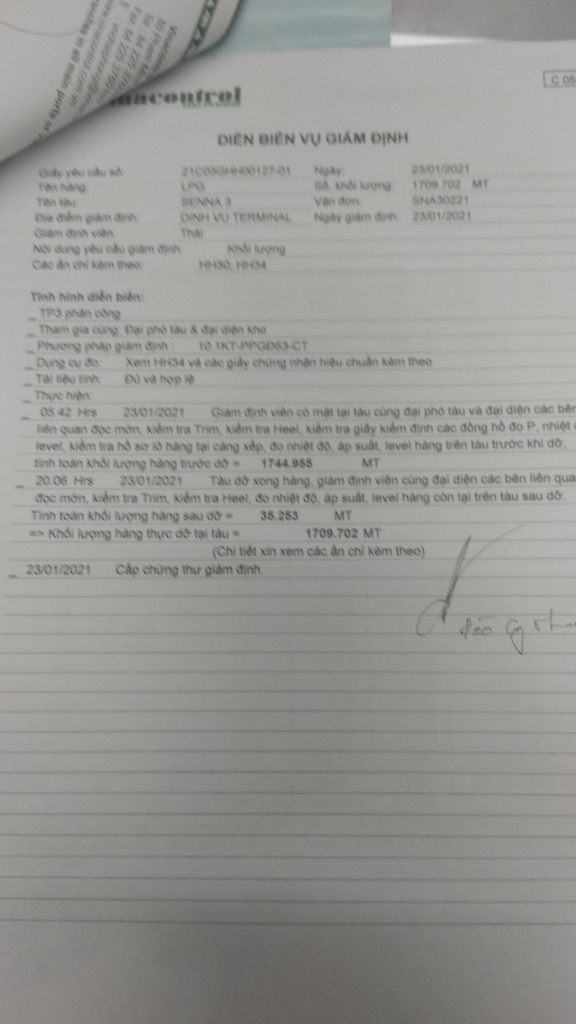 C 05
nacontrol
DIỄN BIẾN VỤ GIÁM ĐỊNH
Giấy yêu cầu số: 21C03GHH00127-01 Ngày: 23/01/2021
Tên hàng: LPG Số, khối lượng: 1709.702 MT
Tên tàu: SENNA 3 Vận đơn: SNA30221
Địa điểm giám định: DINH VU TERMINAL Ngày giám định: 23/01/2021
Giám định viên: Thái
Nội dung yêu cầu giám định: Khối lượng
Các ấn chỉ kèm theo: HH30; HH34
Tình hình diễn biến:
_ TP3 phân công
_ Tham gia cùng: Đại phó tàu & đại diện kho
_ Phương pháp giám định : 10.1KT-PPGĐ63-CT
_ Dụng cụ đo: Xem HH34 và các giấy chứng nhận hiệu chuẩn kèm theo
_ Tài liệu tính: Đủ và hợp lệ
_ Thực hiện:
_ 05.42 Hrs 23/01/2021 Giám định viên có mặt tại tàu cùng đại phó tàu và đại diện các bên
liên quan đọc mớn, kiểm tra Trim, kiểm tra Heel, kiểm tra giấy kiểm định các đồng hồ đo P, nhiệt
level, kiểm tra hồ sơ lô hàng tại cảng xếp, đo nhiệt độ, áp suất, level hàng trên tàu trước khi dỡ,
tính toán khối lượng hàng trước dỡ = 1744.955 MT
_ 20.06 Hrs 23/01/2021 Tàu dỡ xong hàng, giám định viên cùng đại diện các bên liên qua
đọc mớn, kiểm tra Trim, kiểm tra Heel, đo nhiệt độ, áp suất, level hàng còn lại trên tàu sau dỡ.
Tính toán khối lượng hàng sau dỡ = 35.253 MT
=> Khối lượng hàng thực dỡ tại tàu = 1709.702 MT
(Chi tiết xin xem các ấn chỉ kèm theo)
_ 23/01/2021 Cấp chứng thư giám định.